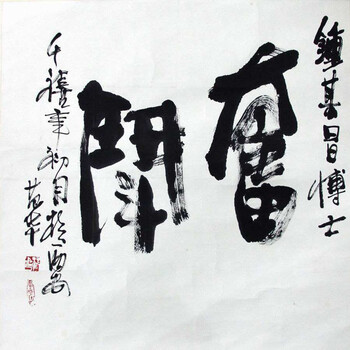 鐘其昌博士
奮鬥
千禧年初月於西安